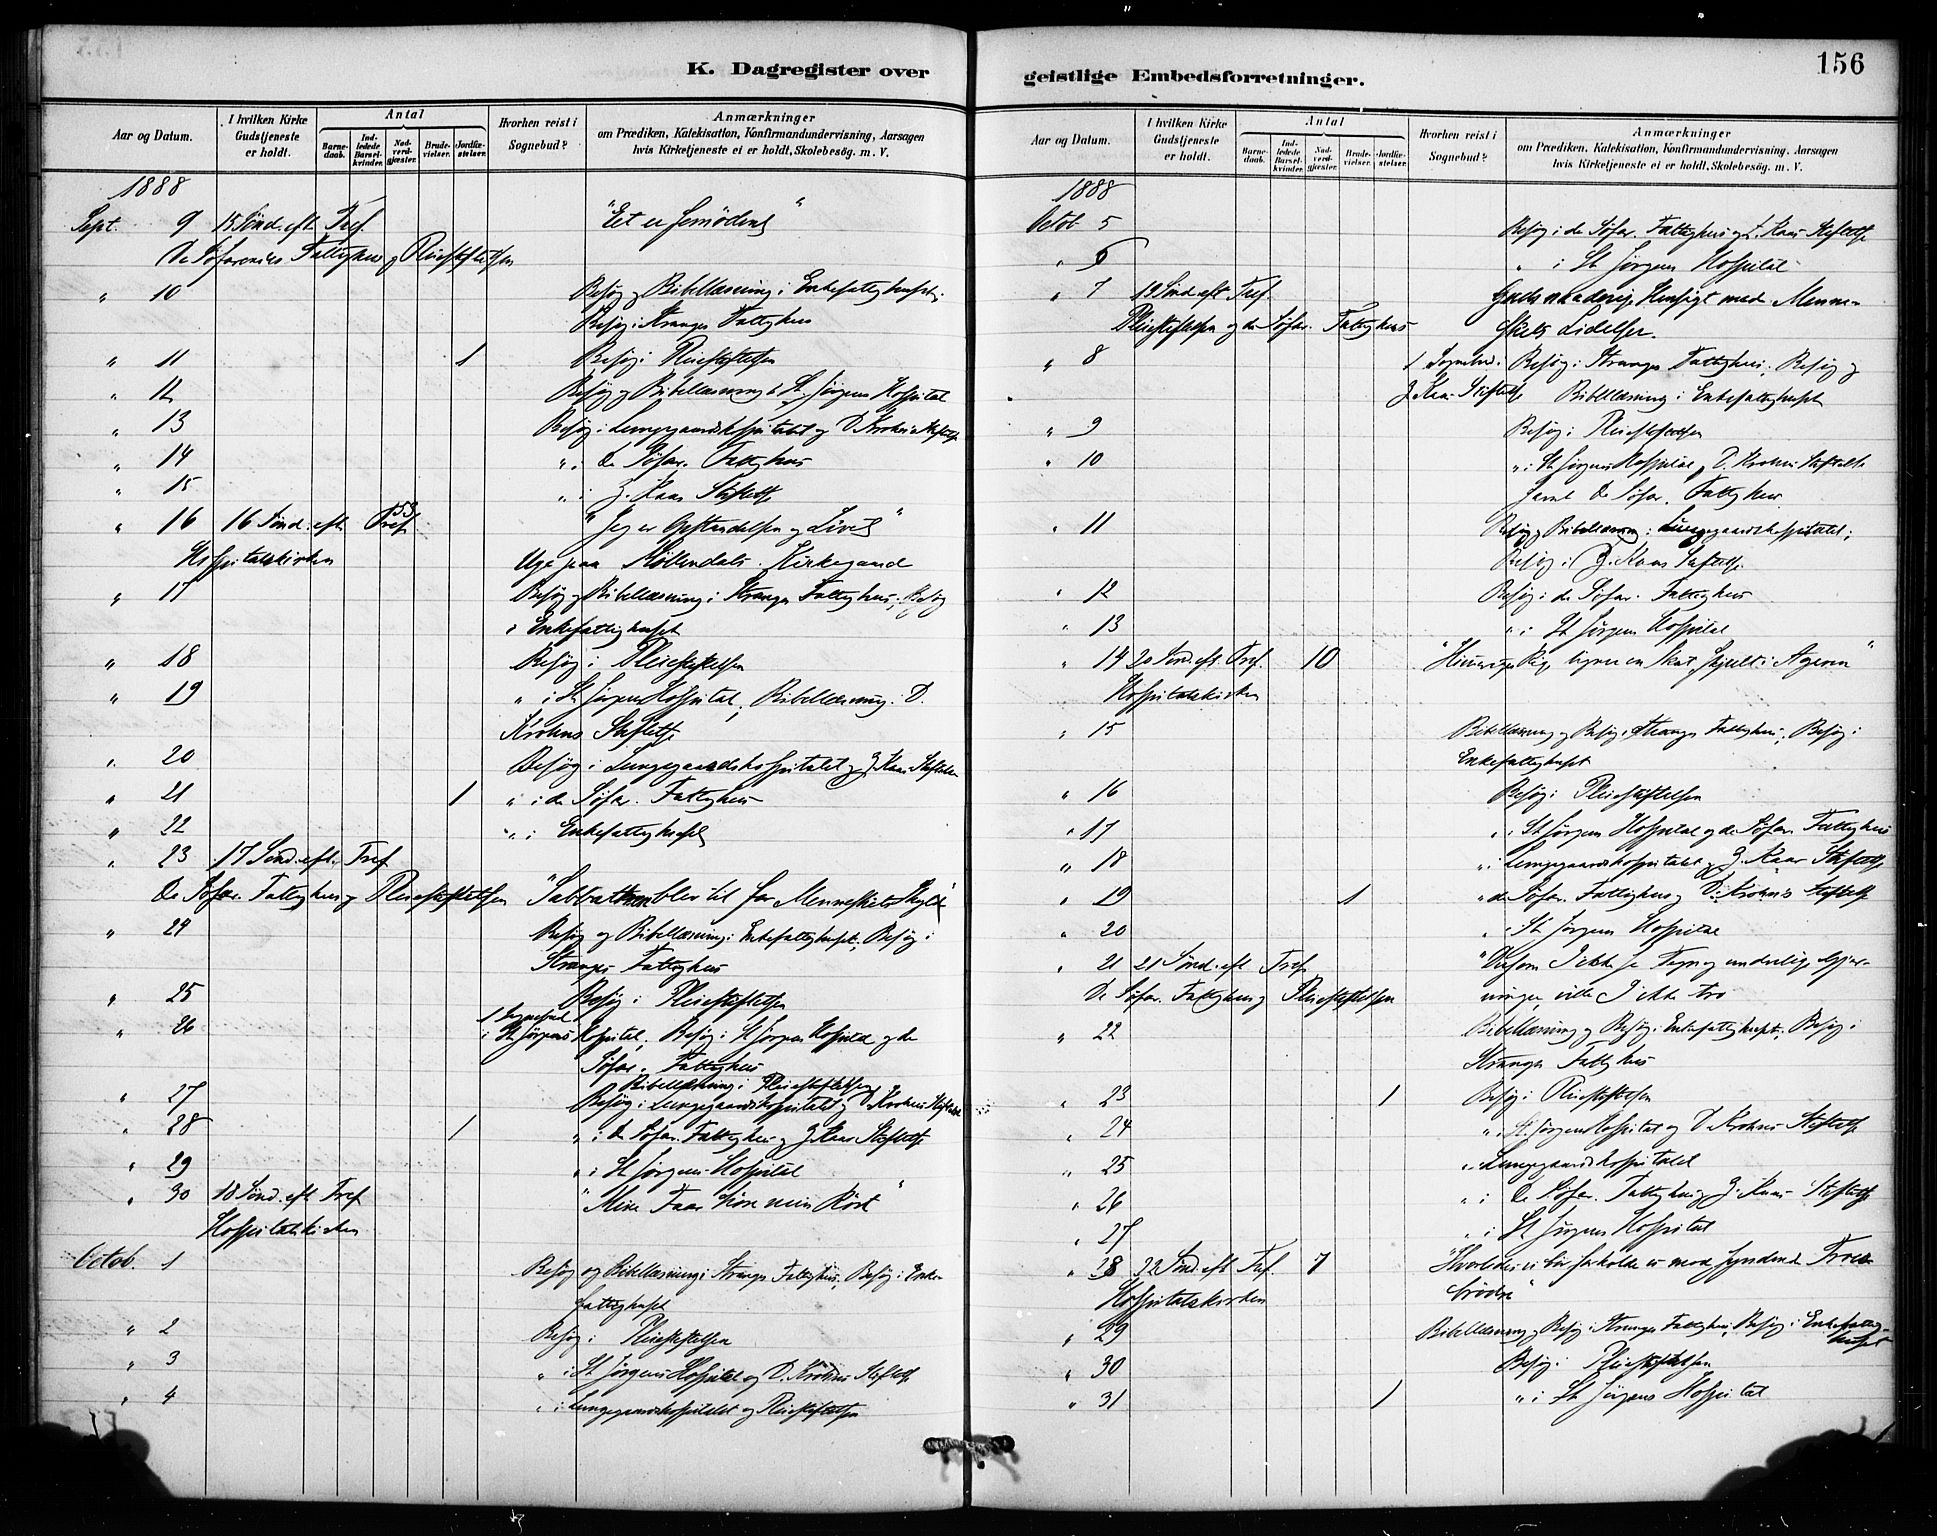 K. Dagregister over
Aar og Datum.
I hvilken Kirke Gudstjeneste er holdt.
Antal
Barnedaab.
Indledede Barselkvinder.
Nadverdgjæster.
Brudevielser.
Jordfæstelser.
Hvorhen reist i Sognebud?
Anmærkninger
om Prædiken, Katekisation, Konfirmandundervisning, Aarsagen
hvis Kirketjeneste ei er holdt, Skolebesøg. m. V.
1888
Sept. 9 15 Sønd. eft. Tref.
De Søfarendes Fattighus og Pleiestiftelsen
" 10 Besøg og Bibellæsning i Enkefattighuset;
Besøg i Stranges Fattighus
" 11 1 Besøg i Pleiestiftelsen
" 12 Besøg og Bibellæsning i St Jørgens Hospital
" 13 Besøg i Lungegaardshospitalet og D. Krohns Stiftelse
" 14 " i De Søfar. Fattighus
" 15 " i Z. Kaas Stiftelse
" 16 16 Sønd. eft. Tref. 53 "Jeg er Opstandelsen og Livet"
Hospitalskirken Uge paa Møllendals Kirkegaard
" 17 Besøg og Bibellæsning i Stranges Fattighus; Besøg
i Enkefattighuset
" 18 Besøg i Pleiestiftelsen
" 19 " i St Jørgens Hospital; Bibellæsning i D.
Krohns Stiftelse
" 20 Besøg i Lungegaardshospitalet og Z. Kaas Stiftelse
" 21 1 " i de Søfar. Fattighus
" 22 " i Enkefattighuset
" 23 17 Sønd. eft. Tref.
De Søfar. Fattighus og Pleiestiftelsen "Sabbathen blev til for Menneskets Skyld"
" 24 Besøg og Bibellæsning i Enkefattighuset; Besøg i
Stranges Fattighus
" 25 Besøg i Pleiestiftelsen
1 Sognebud
" 26 i St Jørgens Hospital. Besøg i St Jørgens Hospital og de
Søfar. Fattighus
Bibellæsning i Pleiestiftelsen
" 27 Besøg i Lungegaardshospitalet og D. Krohns Stiftelse
" 28 1 " i De Søfar. Fattighus og Z. Kaas Stiftelse
" 29 " i St Jørgens Hospital
" 30 18 Sønd. eft. Tref. "Mine Faar høre min Røst"
Hospitalskirken
Octob. 1 Besøg og Bibellæsning i Stranges Fattighus; Besøg i Enke-
fattighuset
" 2 Besøg i Pleiestiftelsen
" 3 " i St Jørgens Hospital og D. Krohns Stiftelse
" 4 " i Lungegaardshospitalet og Pleiestiftelsen
156
geistlige Embedsforretninger.
Aar og Datum.
I hvilken Kirke Gudstjeneste er holdt.
Antal
Barnedaab.
Indledede Barselkvinder.
Nadverdgjæster.
Brudevielser.
Jordfæstelser.
Hvorhen reist i Sognebud?
Anmærkninger
om Prædiken, Katekisation, Konfirmandundervisning. Aarsagen
hvis Kirketjeneste ei er holdt, Skolebesøg. m. V.
1888
Octob 5 Besøg i de Søfar. Fattighus og Z. Kaas Stiftelse
" 6 " i St Jørgens Hospital
" 7 19 Sønd. eft. Tref. Guds naaderige Hensigt med Menne-
Pleiestiftelsen og de Søfar. Fattighus skets Lidelser.
" 8 1 Sognebud i Besøg i Stranges Fattighus; Besøg og
Z. Kaas Stiftelse Bibellæsning i Enkefattighuset
" 9 Besøg i Pleiestiftelsen
" 10 " i St Jørgens Hospital, D. Krohns Stiftelse
samt De Søfar. Fattighus
" 11 Besøg og Bibellæsning i Lungegaardshospitalet;
Besøg i Z. Kaas Stiftelse
" 12 Besøg i de Søfar. Fattighus
" 13 " i St Jørgens Hospital
" 14 20 Sønd. eft. Tref. 10 "Himmeriges Rige ligner en Skat, skjult i Ageren"
Hospitalskirken
" 15 Bibellæsning og Besøg i Stranges Fattighus; Besøg i
Enkefattighuset
" 16 Besøg i Pleiestiftelsen
" 17 " i St Jørgens Hospital og de Søfar. Fattighus
" 18 " i Lungegaardshospitalet og Z. Kaas Stiftelse
" 19 1 " de Søfar. Fattighus og D. Krohns Stiftelse
" 20 " i St Jørgens Hospital
" 21 21 Sønd. eft. Tref. "Dersom I ikke se Tegn og underlige Gjer-
De Søfar. Fattighus og Pleiestiftelsen ninger, ville I ikke tro
" 22 Bibellæsning og Besøg i Enkefattighuset; Besøg i
Stranges Fattighus
" 23 1 Besøg i Pleiestiftelsen
" 24 " i St Jørgens Hospital og D. Krohns Stiftelse
" 25 " i Lungegaardshospitalet
" 26 " i De Søfar. Fattighus og Z. Kaas Stiftelse
" 27 " i St Jørgens Hospital
" 28 22 Sønd. eft. Tref. 7 "Hvorledes vi bør forholde os mod syndende Troes-
Hospitalskirken brødre"
" 29 Bibellæsning og Besøg i Stranges Fattighus; Besøg i Enkefattig-
huset
" 30 Besøg i Pleiestiftelsen
" 31 1 " i St Jørgens Hospital